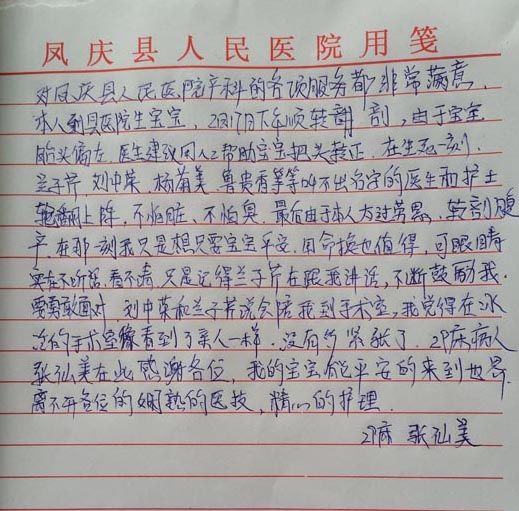 凤庆县人民医院用笺
对凤庆县人民医院产科的各项服务都非常满意，
本人到县医院生宝宝，2月17日下午顺转剖，由于宝宝
胎头偏左，医生建议用人工帮助宝宝把头转正，在生死一刻，
兰子芹，刘中荣，杨菊美，鲁贵香等等叫不出名字的医生和护士
轮翻上阵，不怕脏、不怕臭，最后由于本人太过劳累，转剖腹
产，在那一刻我只是想只要宝宝平安，用命换也值得，可眼睛
实在不听话，看不清，只是记得兰子芹在跟我讲话，不断鼓励我，
要勇敢面对，刘中荣和兰子芹说会陪我到手术室，我觉得在冰
冷的手术室像看到了亲人一样，没有的紧张了，29床病人
张仙美在此感谢各位，我的宝宝能平安的来到世界，
离不开各位的娴熟的医技，精心的护理．
29床 张仙美